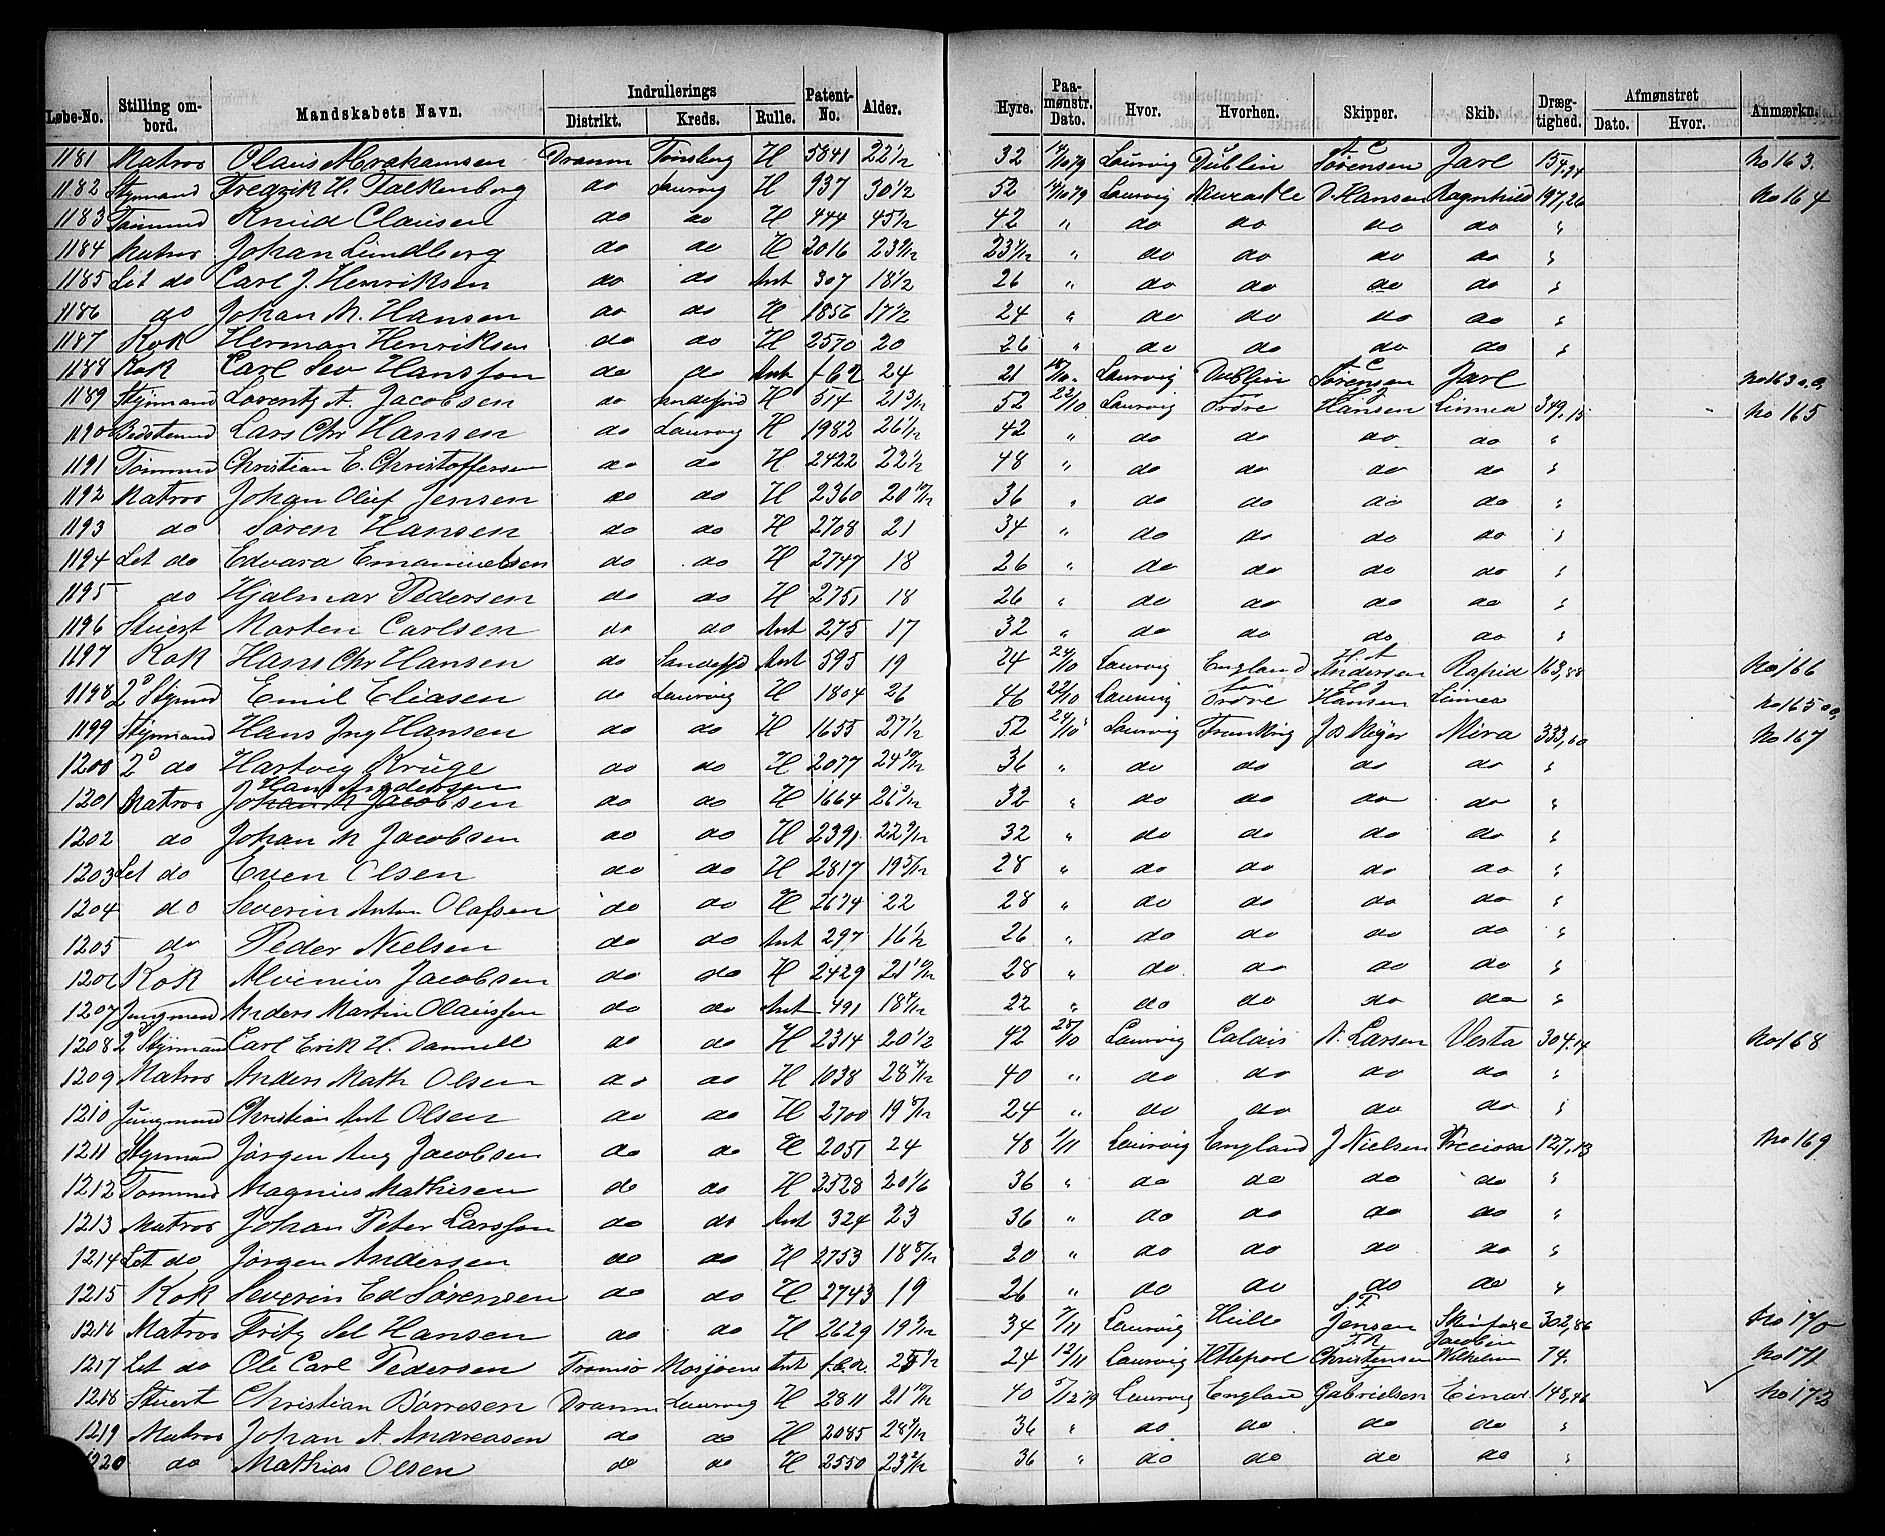 Løbe-No. Stilling ombord. Mandskabets Navn. Indrullerings Distrikt. Kreds. Rulle. Patent-No. Alder. Hyre. Paamønstr. Dato. Hvor. Hvorhen. Skipper. Skib. Drægtighed. Afmønstret Dato. Hvor. Anmærkn.
1181 Matros Olaus Abrahamsen Dramm Tønsberg H 5841 22 1/2 32 14/10 79 Laurvig Dublin A C Sørensen Jarl 154,24 No 163.
1182 Styrmand Fredrik H. Falkenberg do Laurvig H 937 30 1/2 52 14/10 79 Laurvig Newcastle D Hansen Ragnhild 197,26 No 164
1183 Tømmrd Knud Clausen do do H 444 45 1/2 42 " do do do do "
1184 Matros Johan Lundberg do do H 2016 23 9/12 23 1/2 " do do do do "
1185 Let do Carl J. Henriksen do do Ant 307 18 1/2 26 " do do do do "
1186 do Johan M. Hansen do do H 1856 17 1/2 24 " do do do do "
1187 Kok Herman Henriksen do do H 2570 20 26 " do do do do "
1188 Kok Carl Sev Hanssen do do Ant f 62 24 21 18/10. Laurvig Dublin A C Sørensen Jarl No 163 a.
1189 Styrmand Lorentz A Jacobsen do Sandefjord H 514 21 3/12 52 22/10 Laurvig for Ordre H J Hansen Linnea 349,15 No 165
1190 Bedstemnd Lars Chr Hansen do Laurvig H 1982 26 1/12 42 " do do do do "
1191 Tømmrd Christian E. Christoffersen do do H 2422 22 1/2 48 " do do do do "
1192 Matros Johan Oluf Jensen do do H 2360 20 10/12 36 " do do do do "
1193 do Søren Hansen do do H 2708 21 34 " do do do do "
1194 Let do Edvard Emanuelsen do do H 2747 18 26 " do do do do "
1195 do Hjalmar Pedersen do do H 2751 18 26 " do do do do "
1196 Stuert Marten Carlsen do do Ant 275 17 32 " do do do do "
1197 Kok Hans Chr Hansen do Sandefjd Ant 595 19 24 24/10 Laurvig England H A Andersen Rapid 163,88 No 166
1198 2d Styrmd Emil Eliasen do Laurvig H 1804 26 46 22/10 Laurvig for Ordre H J Hansen Linnea No 165 a.
1199 Styrmand Hans Ing Hansen do do H 1655 27 1/2 52 24/10 Laurvig Frankrig J B Meyer Mira 333,60 No 167
1200 2d do Hartvig Kruge do do H 2077 24 10/12 36 " do do do do "
1201 Matros Hans Andersen Johan M Jacobsen do do H 1664 26 3/12 32 " do do do do "
1202 do Johan M Jacobsen do do H 2391 22 9/12 32 " do do do do "
1203 Let do Even Olsen do do H 2817 19 5/12 28 " do do do do "
1204 do Severin Anton Olafsen do do H 2674 22 28 " do do do do "
1205 do Peder Nielsen do do Ant 297 16 1/2 26 " do do do do "
1206 Kok Alvinius Jacobsen do do H 2429 21 10/12 28 " do do do do "
1207 Jungmand Anders Martin Olaussen do do Ant 491 18 4/12 22 " do do do do "
1208 2 Styrman Carl Erik H. Dannell do do H 2314 20 1/2 42 25/10 Laurvig Calais A. Larsen Vesta 304,14 No 168
1209 Matros Anders Math Olsen do do H 1038 28 4/12 40 " do do do do "
1210 Jungmand Christian Ant Olsen do do H 2700 19 8/12 24 " do do do do "
1211 Styrmand Jørgen Aug Jacobsen do do H 2051 24 48 1/11 Laurvig England J Nielsen Preciosa 127,13 No 169
1212 Tømmrd Magnus Mathisen do do H 2528 20 1/6 36 " do do do do "
1213 Matros Johan Peter Larsson do do Ant 324 23 36 " do do do do "
1214 Let do Jørgen Andersen do do H 2753 18 8/12 20 " do do do do "
1215 Kok Severin Ed Sørensen do do H 2743 19 26 " do do do do "
1216 Matros Fritz Sel Hansen do do H 2629 19 9/12 34 7/11 Laurvig Hull S F Jensen 302,86 No 170
1217 Let do Ole Carl Pedersen Tromsø Mosjøens Ant f.e.a. 25 1/2 24 12/11 Laurvig Htlepool F R Christensen Jacobine Wilhelmine 74. No 171
1218 Stuert Christian Børresen Dramm Laurvig H 2811 21 10/12 40 5/12 79 Laurvig England Gabrielsen Einar 148,46 No 172
1219 Matros Johan A. Andreasen do do H 2085 28 4/12 36 " do do do do "
1220 do Mathias Olsen do do H 2550 23 2/12 36 " do do do do "